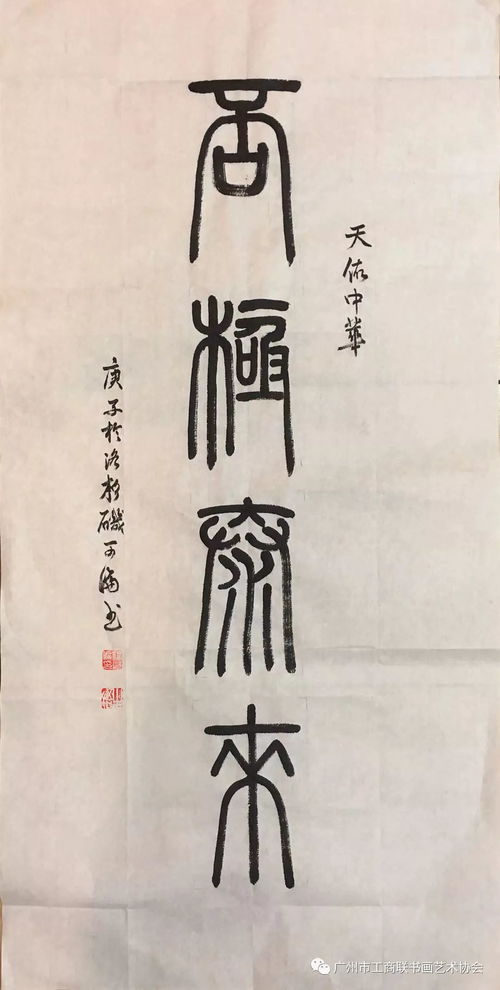 天佑中華
否極泰來
庚子於洛杉磯可滿書
广州市工商联书画艺术协会